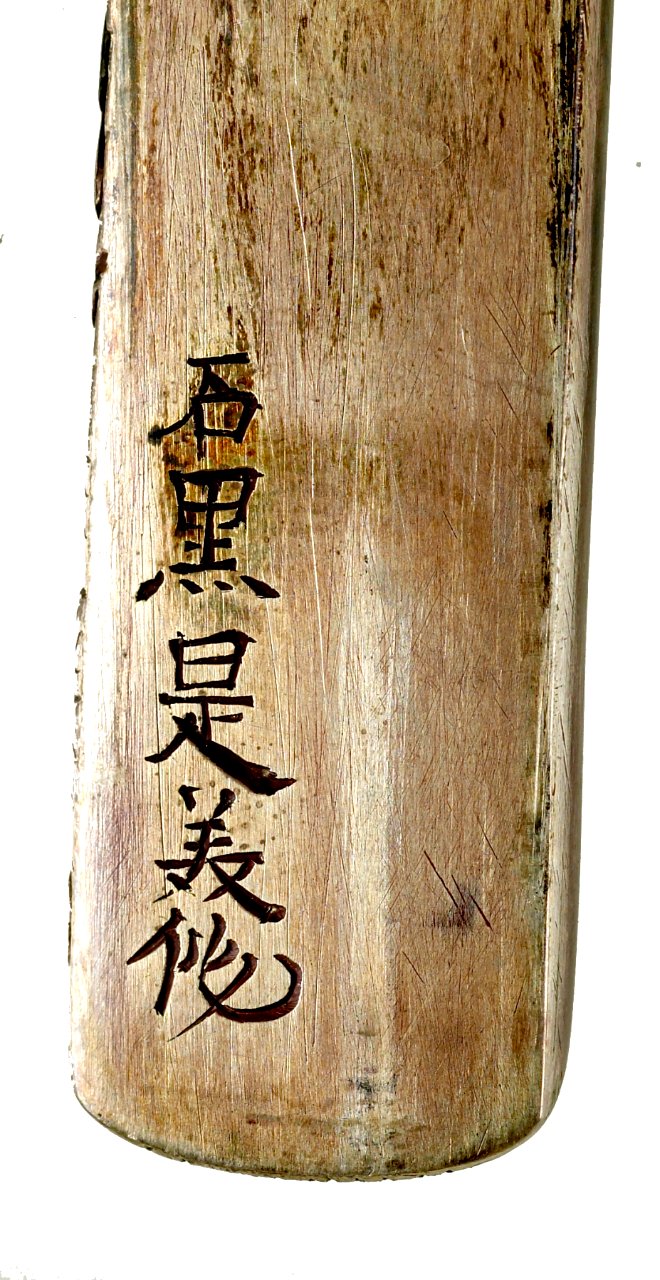 石黒是美